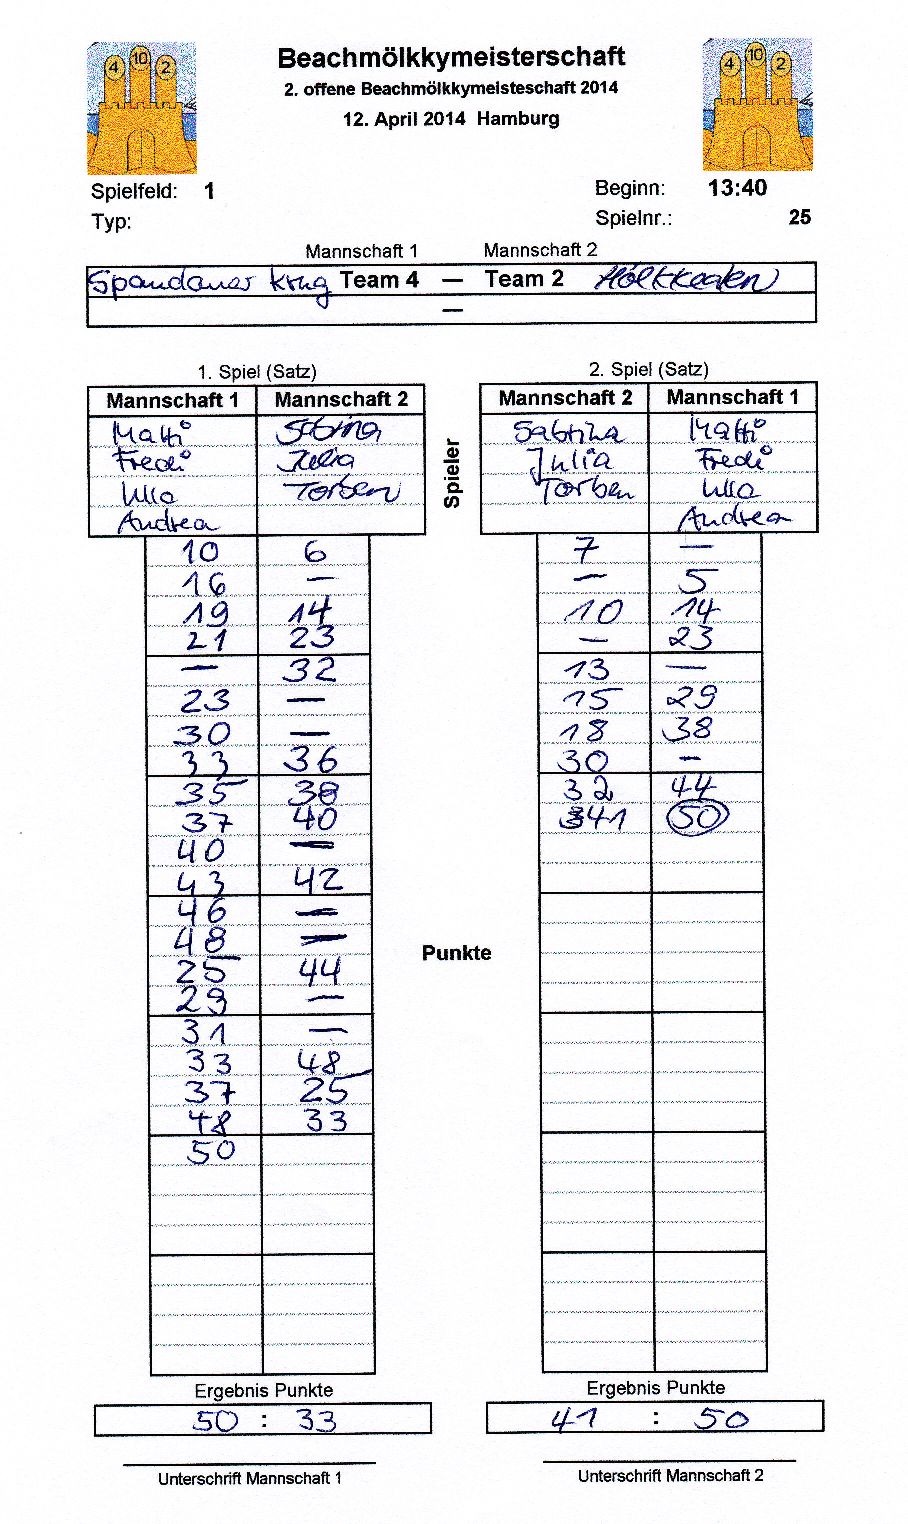 4 10 2
4 10 2
Beachmölkkymeisterschaft
2. offene Beachmölkkymeisteschaft 2014
12. April 2014 Hamburg
Spielfeld: 1
Beginn: 13:40
Typ:
Spielnr.: 25
Mannschaft 1 Mannschaft 2
Spandauer Krug Team 4 — Team 2
—
1. Spiel (Satz)
Mannschaft 1 Mannschaft 2
Matti Sabrina
Fredi Julia
Ulla Torben
Andrea
10 6
16 —
19 14
21 23
— 32
23 —
30 —
33 36
35 38
37 40
40 —
43 42
46 —
48 —
25 44
29 —
31 —
33 48
37 25
48 33
50
Ergebnis Punkte
50 : 33
Unterschrift Mannschaft 1
Spieler
Punkte
2. Spiel (Satz)
Mannschaft 2 Mannschaft 1
Sabrina Matti
Julia Fredi
Torben Ulla
Andrea
7 —
— 5
10 14
— 23
13 —
15 29
18 38
30 —
32 44
41 50
Ergebnis Punkte
41 : 50
Unterschrift Mannschaft 2